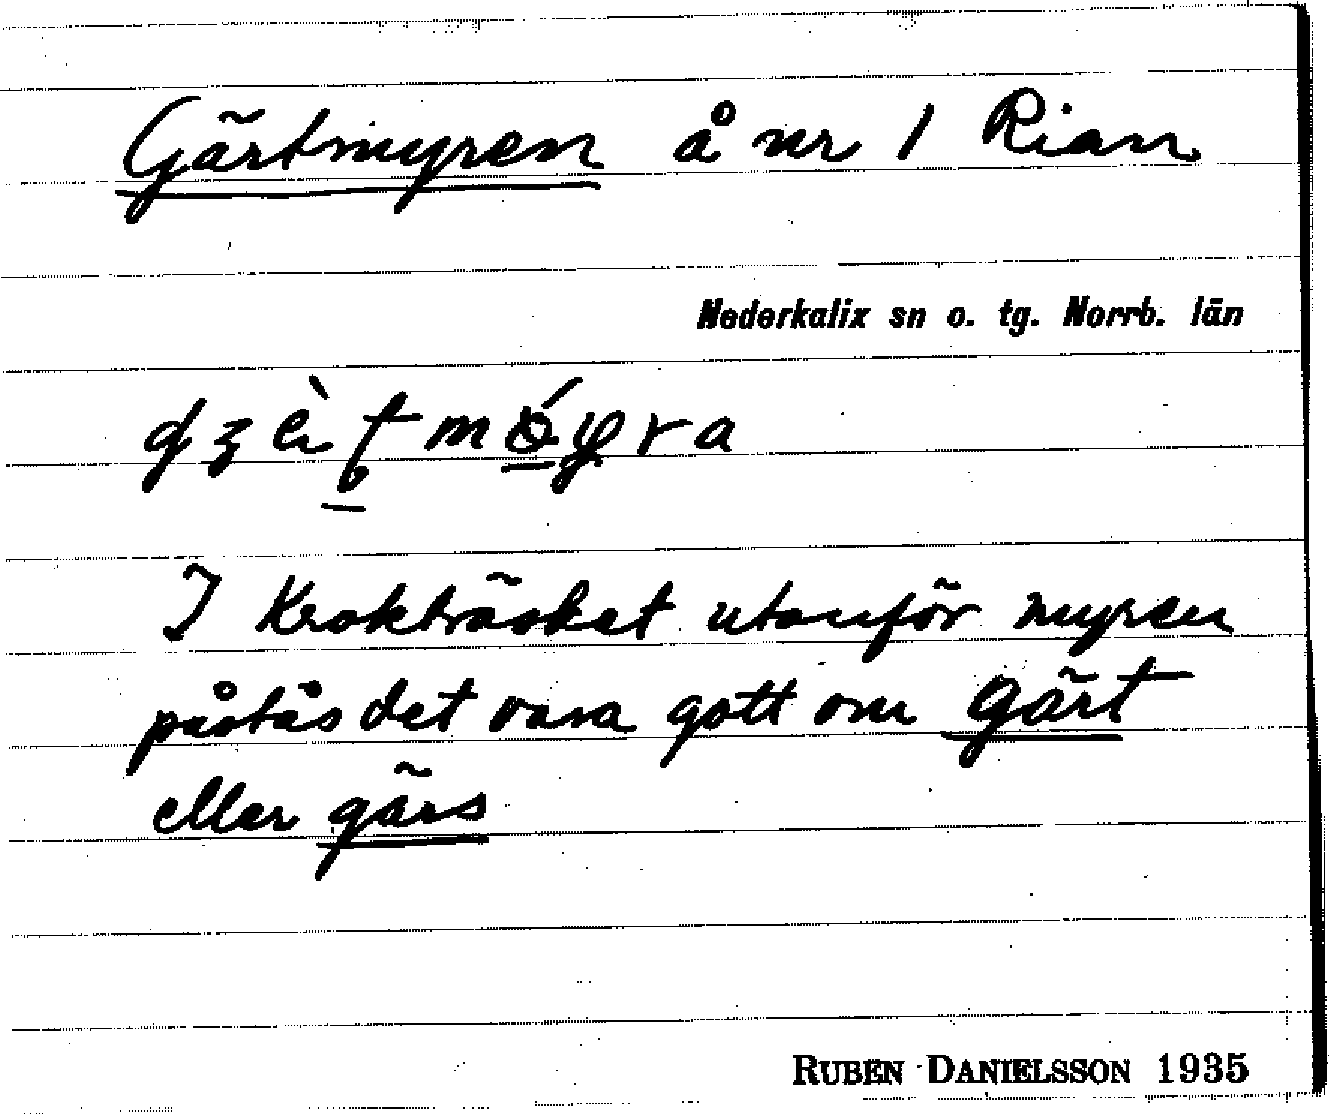 Gärtmyren å nr 1 Rian
Nederkalix sn o. tg. Norrb. län
I Krokträsket utanför myren
påstås det vara gott om gärt
eller gärs
RUBEN DANIELSSON 1935